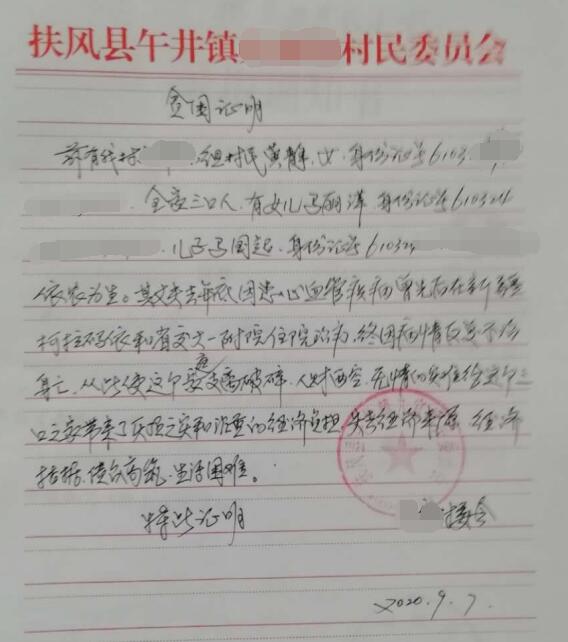 扶风县午井镇 村民委员会
贫困证明
兹有我村 组村民黄静,女,身份证号6103
全家三口人,有女儿马丽洋,身份证号610324
儿子马国起,身份证号610324
依农为生。其丈夫去年底因患心血管疾病曾先后在新疆
柯拉码依和省交大一附院住院治病,终因病情反复不治
身亡,从此使这个家庭支离破碎,人财两空,无情的灾难给这个三
口之家带来了灭顶之灾和沉重的经济负担,失去经济来源,经济
拮据,债台高筑,生活困难。
特此证明
村委会
2020.9.7